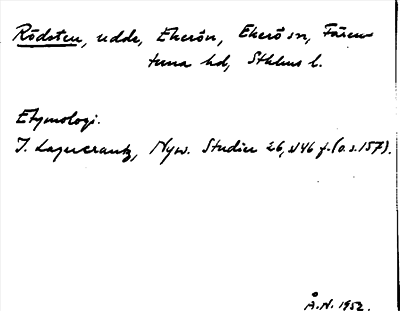 Rödsten, udde, Ekerön, Ekerö sn, Fären
tuna hd, Sthlms l.
Etymologi.
I. Lagercrantz, Nysv. Studier 26, s. 146 f. (o. s. 157).
Å.N. 1952.